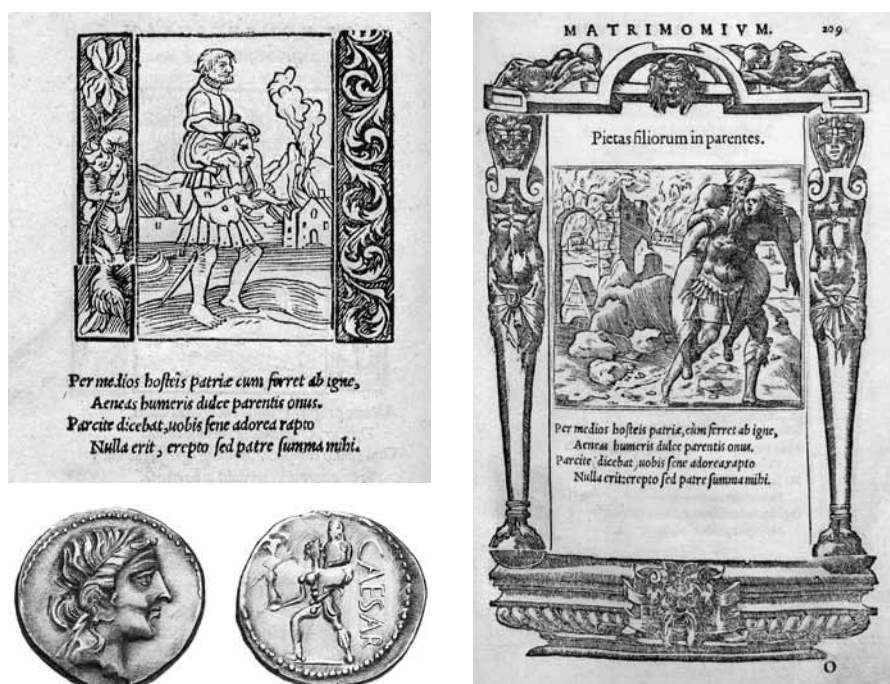 Per medios hosteis patriæ cum ferret ab igne,
Aeneas humeris dulce parentis onus.
Parcite dicebat, uobis sene adorea rapto
Nulla erit, erepto sed patre summa mihi.
CAESAR
MATRIMOMIVM. 209
Pietas filiorum in parentes.
Per medios hosteis patriæ, cùm ferret ab igne,
Aeneas humeris dulce parentis onus.
Parcite, dicebat, uobis sene adorea rapto
Nulla erit: erepto sed patre summa mihi.
O